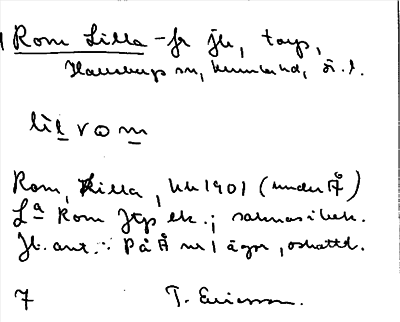 Rom Lilla – fr jb, torp,
Hallsbergs sn, Kumla hd, ö.l.
lil rom
Rom, Lilla, hk 1901 (under Å)
La Rom Jtp ek.; saknas i bek.
Jb. ant.: På Å nr 1 ägor, oskattl.
7 T. Ericsson.